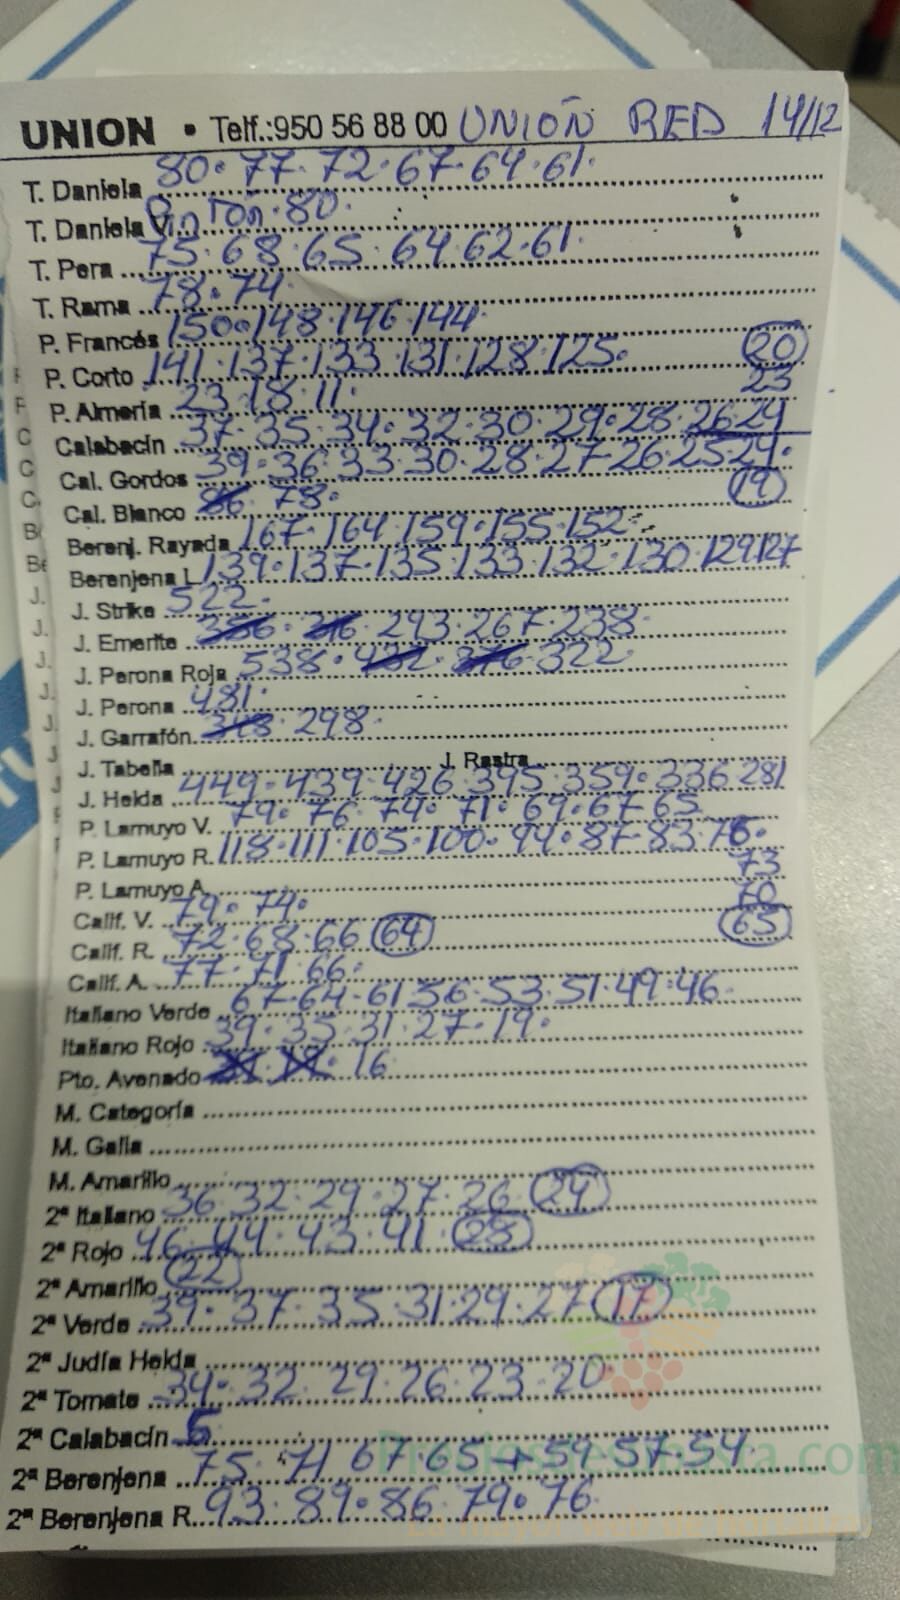 UNION • Telf.:950 56 88 00 UNIÓN RED 14/12
T. Daniela 80. 77. 72. 67. 64. 61.
T. Daniela V. Pintón. 80.
T. Pera 75. 68. 65. 64 62. 61.
T. Rama 78. 74.
P. Francés 150. 148. 146. 144.
P. Corto 141. 137. 133. 131. 128. 125. 20
P. Almería 23. 18. 11. 23
Calabacín 37. 35. 34. 32. 30. 29. 28. 26 24
Cal. Gordos 39. 36. 33. 30. 28. 27. 26. 25 24.
Cal. Blanco 78. 19
Berenj. Rayada 167. 164. 159. 155. 152.
Berenjena L 139. 137. 135. 133. 132. 130 129 127
J. Strike 522.
J. Emerite 293. 267. 238.
J. Perona Roja 538. 322.
J. Perona 481.
J. Garrafón 298.
J. Tabella J. Rastra
J. Helda 449. 439. 426. 395. 359. 336 281
P. Lamuyo V. 79. 76. 74. 71. 69. 67 65
P. Lamuyo R. 118. 111. 105. 100. 94. 87. 83. 76.
73
P. Lamuyo A. 70
Calif. V. 79. 74. 65
Calif. R. 72. 68. 66 64
Calif. A. 77. 71. 66.
Italiano Verde 67. 64. 61 56. 53. 51. 49. 46.
Italiano Rojo 39. 35. 31. 27. 19.
Pto. Avenado 16
M. Categoría
M. Galia
M. Amarillo
2ª Italiano 36. 32. 29. 27. 26 24
2ª Rojo 46. 44. 43. 41. 28
2ª Amarillo 22
2ª Verde 39. 37. 35. 31. 29. 27 17
2ª Judía Helda
2ª Tomate 34. 32. 29. 26. 23. 20
2ª Calabacín
2ª Berenjena 75. 71 67 65 59 57. 54
2ª Berenjena R. 93. 89. 86. 79. 76.
Preciosdesubasta.com
La mayor web de hortalizas